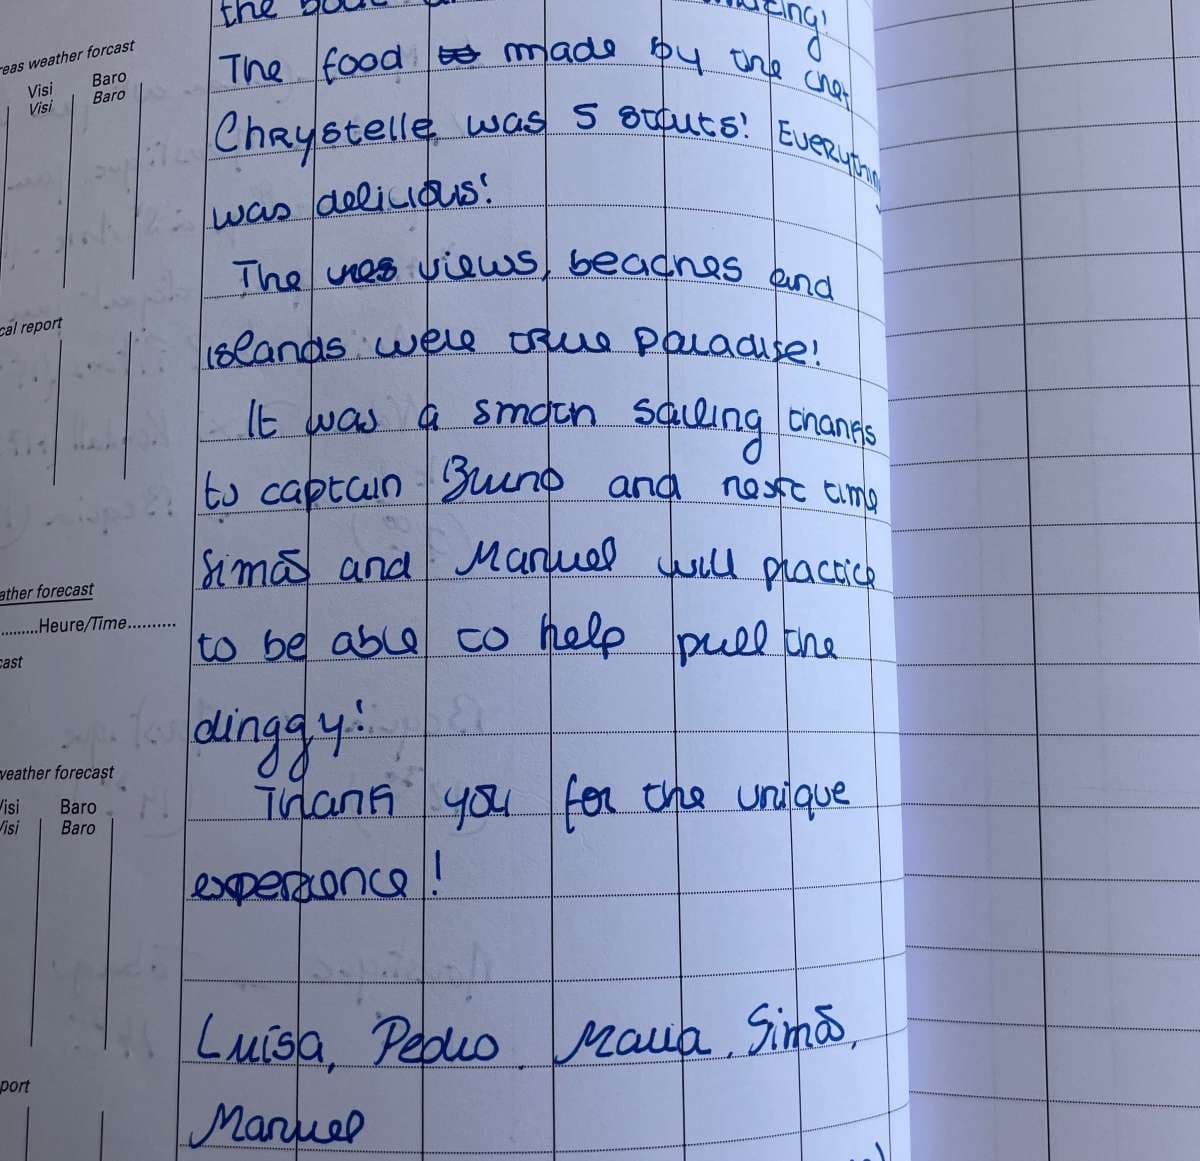 the boat
The food made by the chef
Chrystelle was 5 stauts! Everything
was delicious!
The views, beaches and
islands were true paradise!
It was a smoth sailing thanks
to captain Bruno and next time
Simão and Manuel will practice
to be able to help pull the
dinggy!
Thank you for the unique
experience!
Luísa, Pedro, Maria, Simão,
Manuel
reas weather forcast
Visi Baro
Visi Baro
cal report
ather forecast
.........Heure/Time..........
cast
weather forecast
Visi Baro
Visi Baro
port